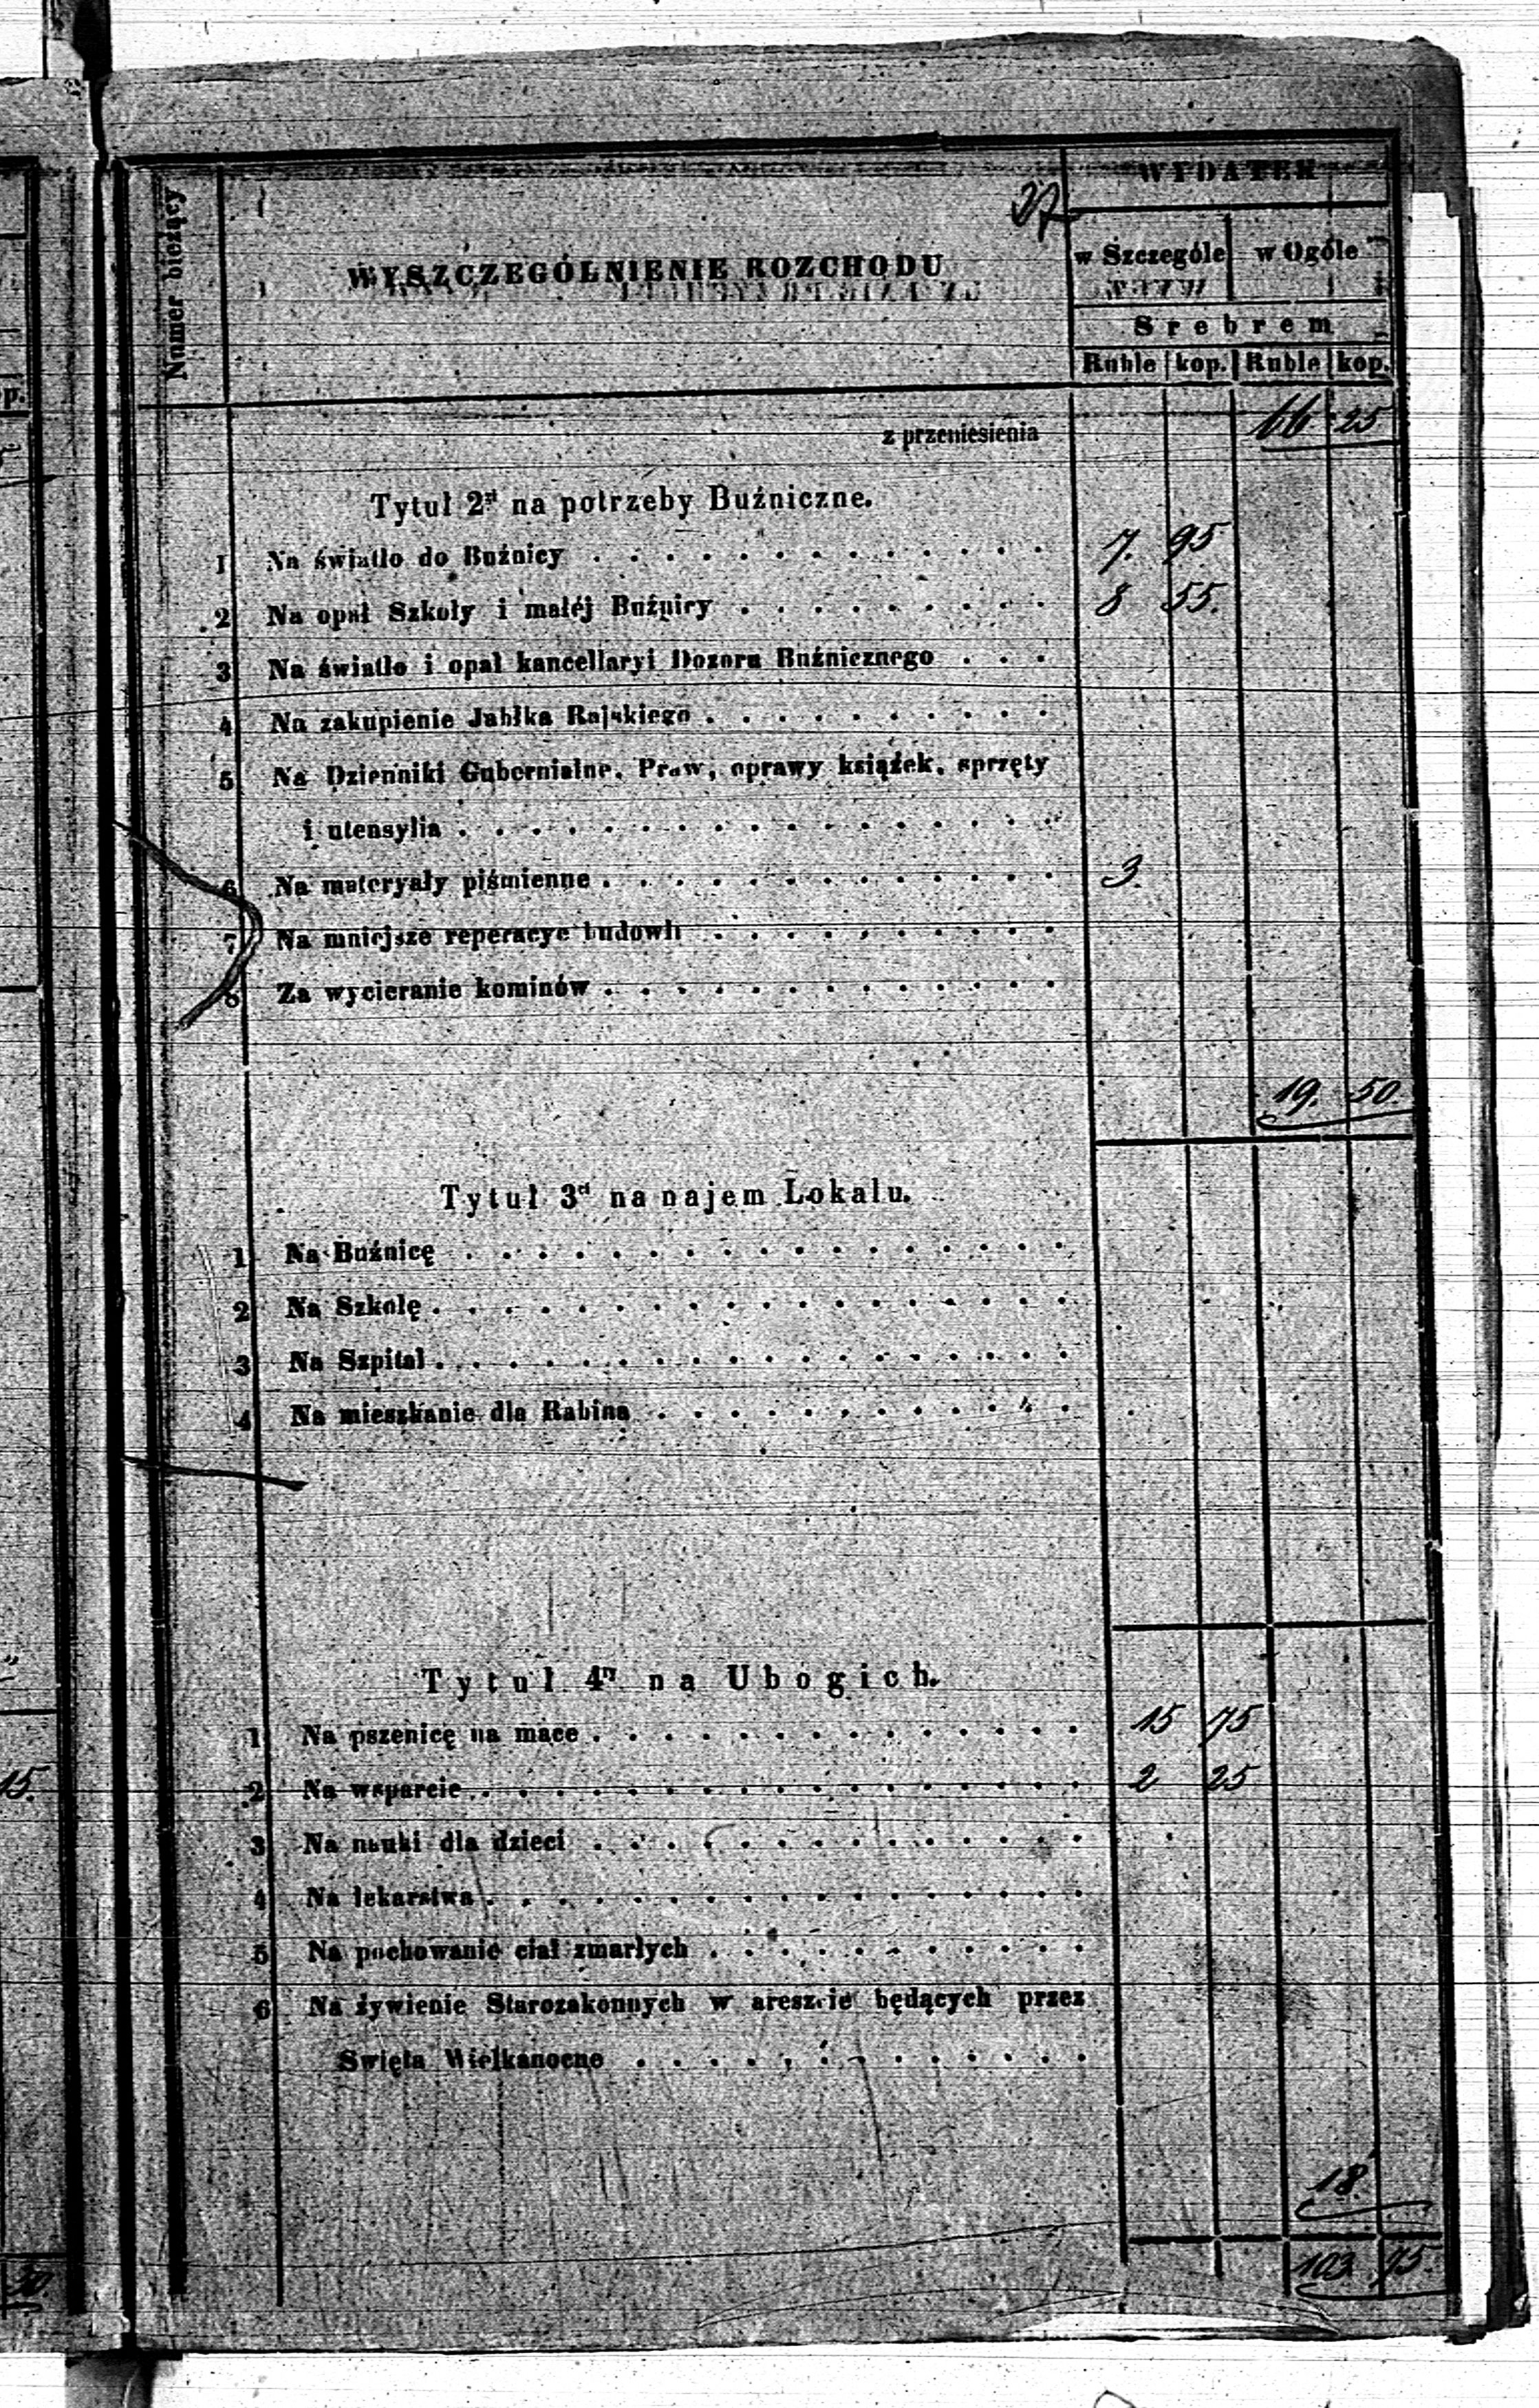 37
WYDATEK
Numer bieżący
WYSZCZEGÓLNIENIE ROZCHODU
w Szczególe w Ogóle
Srebrem
Ruble kop. Ruble kop.
z przeniesienia 66 25
Tytuł 2gi na potrzeby Buźniczne.
1 Na światło do Buźnicy . . . . . . . . . . . . . 7. 95
2 Na opał Szkoły i małéj Buźnicy . . . . . . . . . 8 55.
3 Na światło i opał kancellaryi Dozoru Buźnicznego . . .
4 Na zakupienie Jabłka Rajskiego . . . . . . . . . .
5 Na Dzienniki Gubernialne, Praw, oprawy książek, sprzęty
i utensylia . . . . . . . . . . . . . . . . .
6 Na materyały piśmienne . . . . . . . . . . . . . 3.
7 Na mniejsze reperacye budowli . . . . . . . . . .
8 Za wycieranie kominów . . . . . . . . . . . . .
19. 50
Tytuł 3ci na najem Lokalu.
1 Na Buźnicę . . . . . . . . . . . . . . . . .
2 Na Szkołę . . . . . . . . . . . . . . . . . .
3 Na Szpital . . . . . . . . . . . . . . . . . .
4 Na mieszkanie dla Rabina . . . . . . . . . . . .
Tytuł 4ty na Ubogich.
1 Na pszenicę na mace . . . . . . . . . . . . . . 15 75
2 Na wsparcie . . . . . . . . . . . . . . . . . 2 25
3 Na nauki dla dzieci . . . . . . . . . . . . . .
4 Na lekarstwa . . . . . . . . . . . . . . . . .
5 Na pochowanie ciał zmarłych . . . . . . . . . . .
6 Na żywienie Starozakonnych w areszcie będących przez
Swięta Wielkanocne . . . . . . . . . . . . .
18.
103 75.